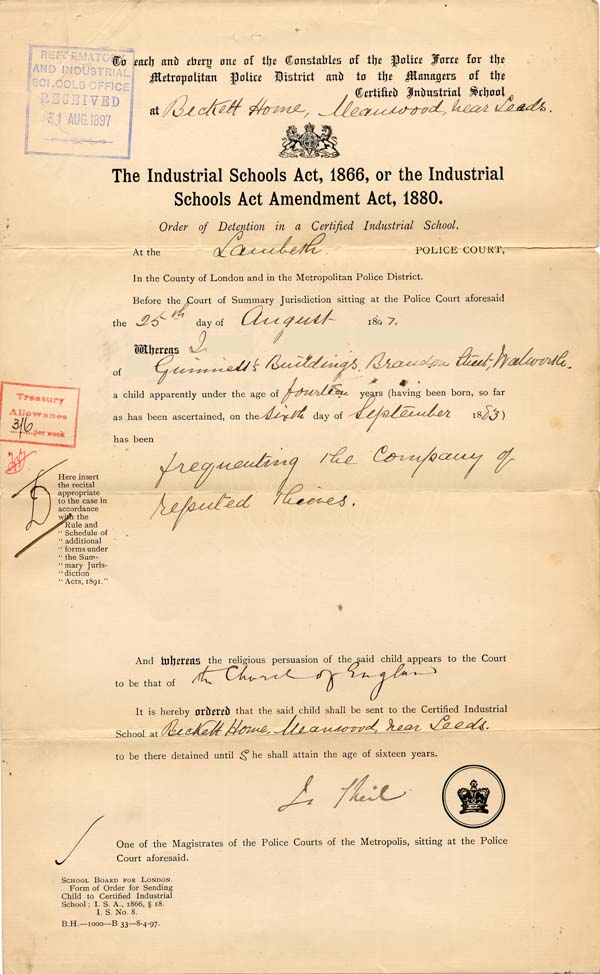 REFORMATORY
AND INDUSTRIAL
SCHOOLS OFFICE
RECEIVED
31 AUG. 1897
To each and every one of the Constables of the Police Force for the
Metropolitan Police District and to the Managers of the
Certified Industrial School
at Beckett Home, Meanwood, near Leeds.
The Industrial Schools Act, 1866, or the Industrial
Schools Act Amendment Act, 1880.
Order of Detention in a Certified Industrial School.
At the Lambeth POLICE COURT,
In the County of London and in the Metropolitan Police District.
Before the Court of Summary Jurisdiction sitting at the Police Court aforesaid
the 25th day of August 1897.
Whereas
of Buildings, Brandon Street, Walworth.
a child apparently under the age of fourteen years (having been born, so far
as has been ascertained, on the sixth day of September 1883)
has been
frequenting the Company of
reputed thieves.
Treasury
Allowance
3/6 per week
D
Here insert
the recital
appropriate
to the case in
accordance
with the
" Rule and
" Schedule of
" additional
" forms under
" the Sum-
" mary Juris-
" diction
" Acts, 1891."
And whereas the religious persuasion of the said child appears to the Court
to be that of the Church of England
It is hereby ordered that the said child shall be sent to the Certified Industrial
School at Beckett Home, Meanwood, near Leeds.
to be there detained until She shall attain the age of sixteen years.
One of the Magistrates of the Police Courts of the Metropolis, sitting at the Police
Court aforesaid.
SCHOOL BOARD FOR LONDON.
Form of Order for Sending
Child to Certified Industrial
School; I. S. A., 1866, § 18.
I. S. No. 8.
B.H.—1000—B 33—8-4-97.